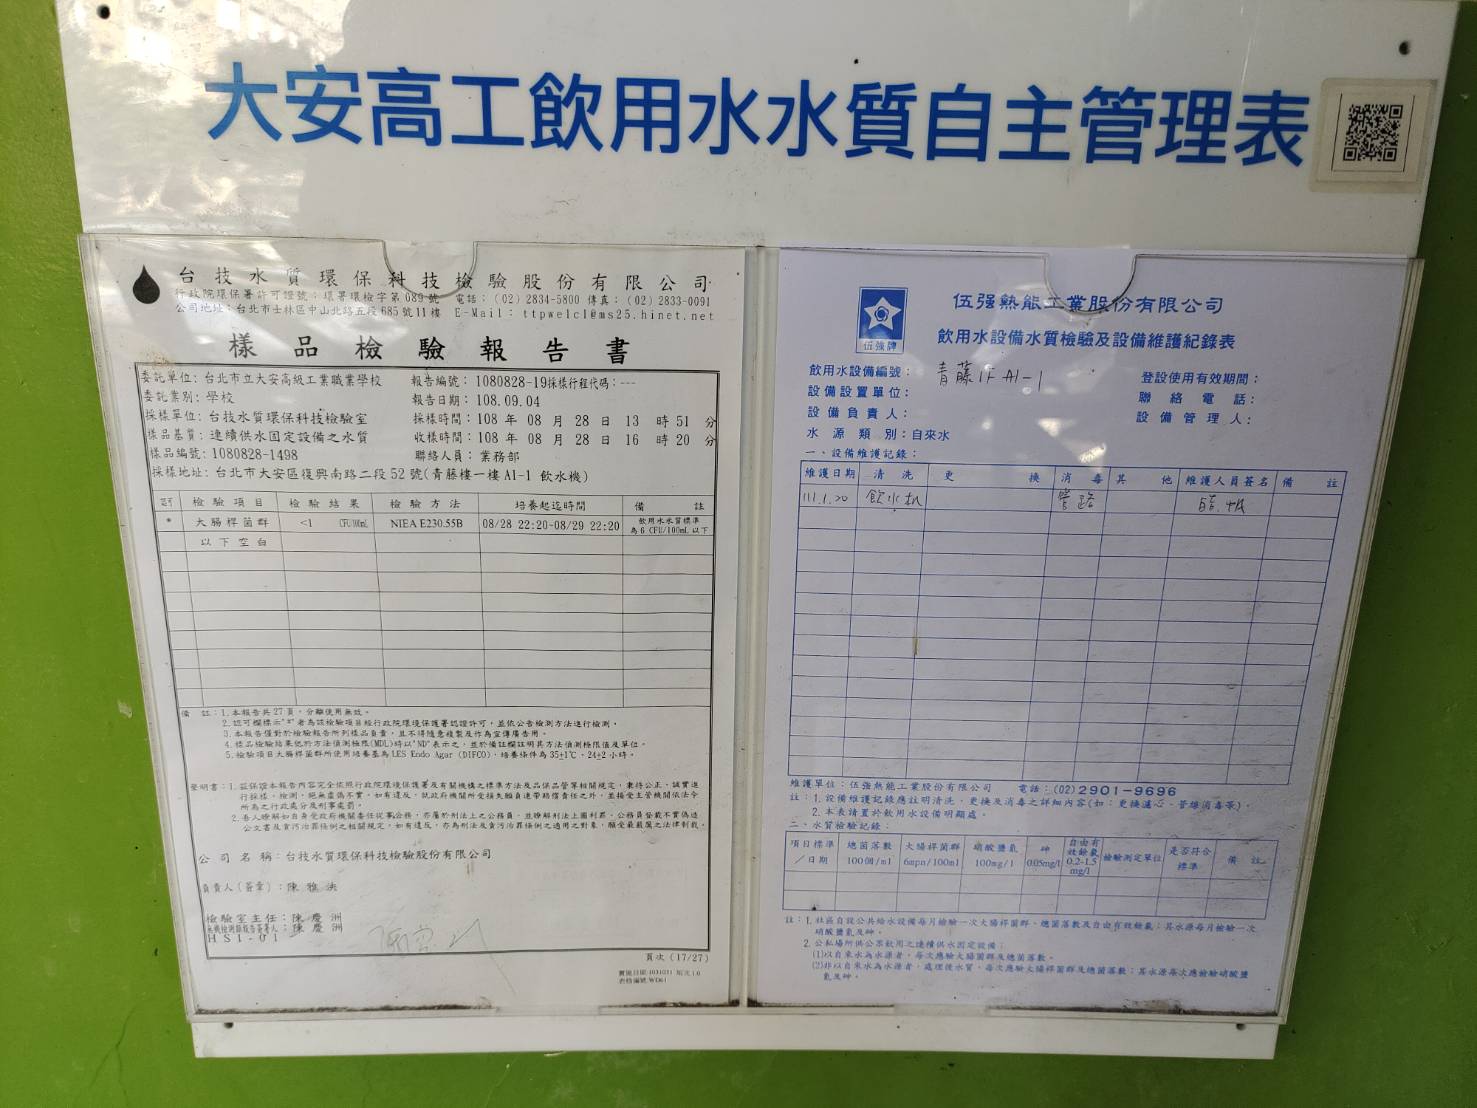 大安高工飲用水水質自主管理表
台技水質環保科技檢驗股份有限公司
行政院環保署許可證號：環署環檢字第089號 電話：(02) 2834-5800 傳真：(02) 2833-0091
公司地址：台北市士林區中山北路五段685號11樓 E-Mail: ttpwelcl@ms25.hinet.net
樣品檢驗報告書
委託單位：台北市立大安高級工業職業學校 報告編號：1080828-19採樣行程代碼：---
委託業別：學校 報告日期：108.09.04
採樣單位：台技水質環保科技檢驗室 採樣時間：108 年 08 月 28 日 13 時 51 分
樣品基質：連續供水固定設備之水質 收樣時間：108 年 08 月 28 日 16 時 20 分
樣品編號：1080828-1498 聯絡人員：業務部
採樣地址：台北市大安區復興南路二段52號(青藤樓一樓A1-1 飲水機)
檢驗項目 檢驗結果 檢驗方法 培養起迄時間 備註
* 大腸桿菌群 <1 CFU/100mL NIEA E230.55B 08/28 22:20-08/29 22:20 飲用水水質標準
為6 CFU/100mL以下
以下空白
備註：1.本報告共27頁，分離使用無效。
2.認可欄標示"*"者為該檢驗項目經行政院環境保護署認證許可，並依公告檢測方法進行檢測。
3.本報告僅對於檢驗報告所列樣品負責，且不得隨意複製及作為宣傳廣告用。
4.樣品檢驗結果低於方法偵測極限(MDL)時以"ND"表示之，並於備註欄註明其方法偵測極限值及單位。
5.檢驗項目大腸桿菌群所使用培養基為LES Endo Agar (DIFCO)，培養條件為35±1℃、24±2小時。
聲明書：1.茲保證本報告內容完全依照行政院環境保護署及有關機構之標準方法及品保品管等相關規定，秉持公正、誠實進
行採樣、檢測，絕無虛偽不實，如有違反，就政府機關所受損失願負連帶賠償責任之外，並接受主管機關依法令
所為之行政處分及刑事處罰。
2.吾人瞭解如自身受政府機關委任從事公務，亦屬於刑法上之公務員，並瞭解刑法上圖利罪、公務員登載不實偽造
公文書及貪污治罪條例之相關規定，如有違反，亦為刑法及貪污治罪條例之適用之對象，願受最嚴厲之法律制裁。
公司名稱：台技水質環保科技檢驗股份有限公司
負責人(簽章)：陳雅洪
檢驗室主任：陳慶洲
無機檢測類報告簽署人：陳慶洲
HSI-01
頁次 (17/27)
伍強牌
伍强熱能工業股份有限公司
飲用水設備水質檢驗及設備維護紀錄表
飲用水設備編號：青藤1F A1-1 登設使用有效期間：
設備設置單位： 聯絡電話：
設備負責人： 設備管理人：
水源類別：自來水
一、設備維護記錄：
維護日期 清洗 更換 消毒 其他 維護人員簽名 備註
111.1.20 飲水机 管路
維護單位：伍強熱能工業股份有限公司 電話：(02)2901-9696
註：1.設備維護記錄應註明清洗、更換及消毒之詳細內容(如：更換濾心、管線消毒等)。
2.本表請置於飲用水設備明顯處。
二、水質檢驗記錄：
項目標準／日期 總菌落數 100個/ml 大腸桿菌群 6mpn/100ml 硝酸鹽氮 100mg/l 砷 0.05mg/l 自由有效餘氯 0.2-1.5 mg/l 檢驗測定單位 是否符合標準 備註
註：1.社區自設公共給水設備每月檢驗一次大腸桿菌群、總菌落數及自由有效餘氯；其水源每月檢驗一次
硝酸鹽氮及砷。
2.公私場所供公眾飲用之連續供水固定設備：
(1)以自來水為水源者，每次應驗大腸桿菌群及總菌落數。
(2)非以自來水為水源者，處理後水質，每次應驗大腸桿菌群及總菌落數；其水源每次應檢驗硝酸鹽
氮及砷。